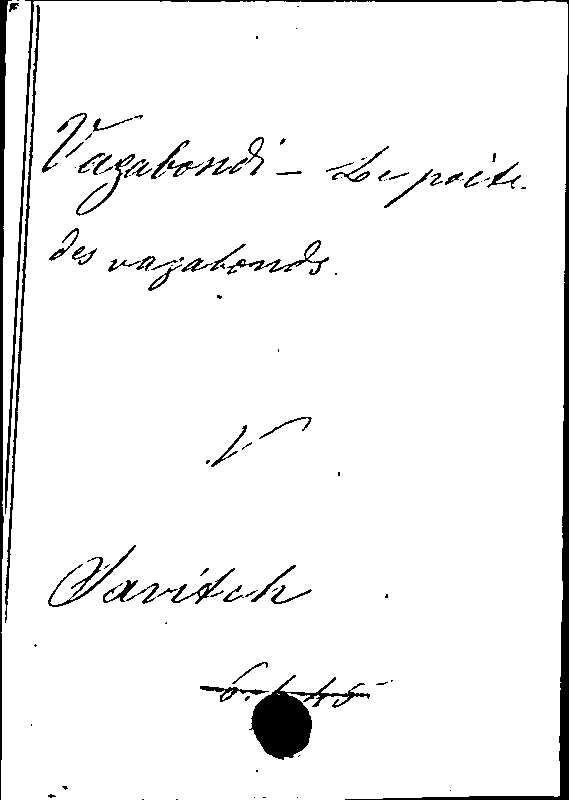 Vagabondi - Le poète
des vagabonds.
V
Savitch